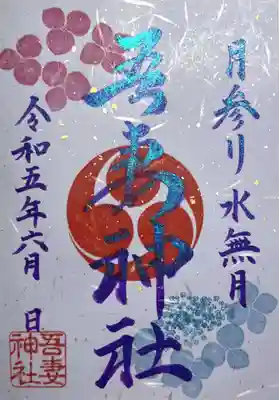 月参り 水無月
吾妻神社
令和五年六月 日
吾妻
神社